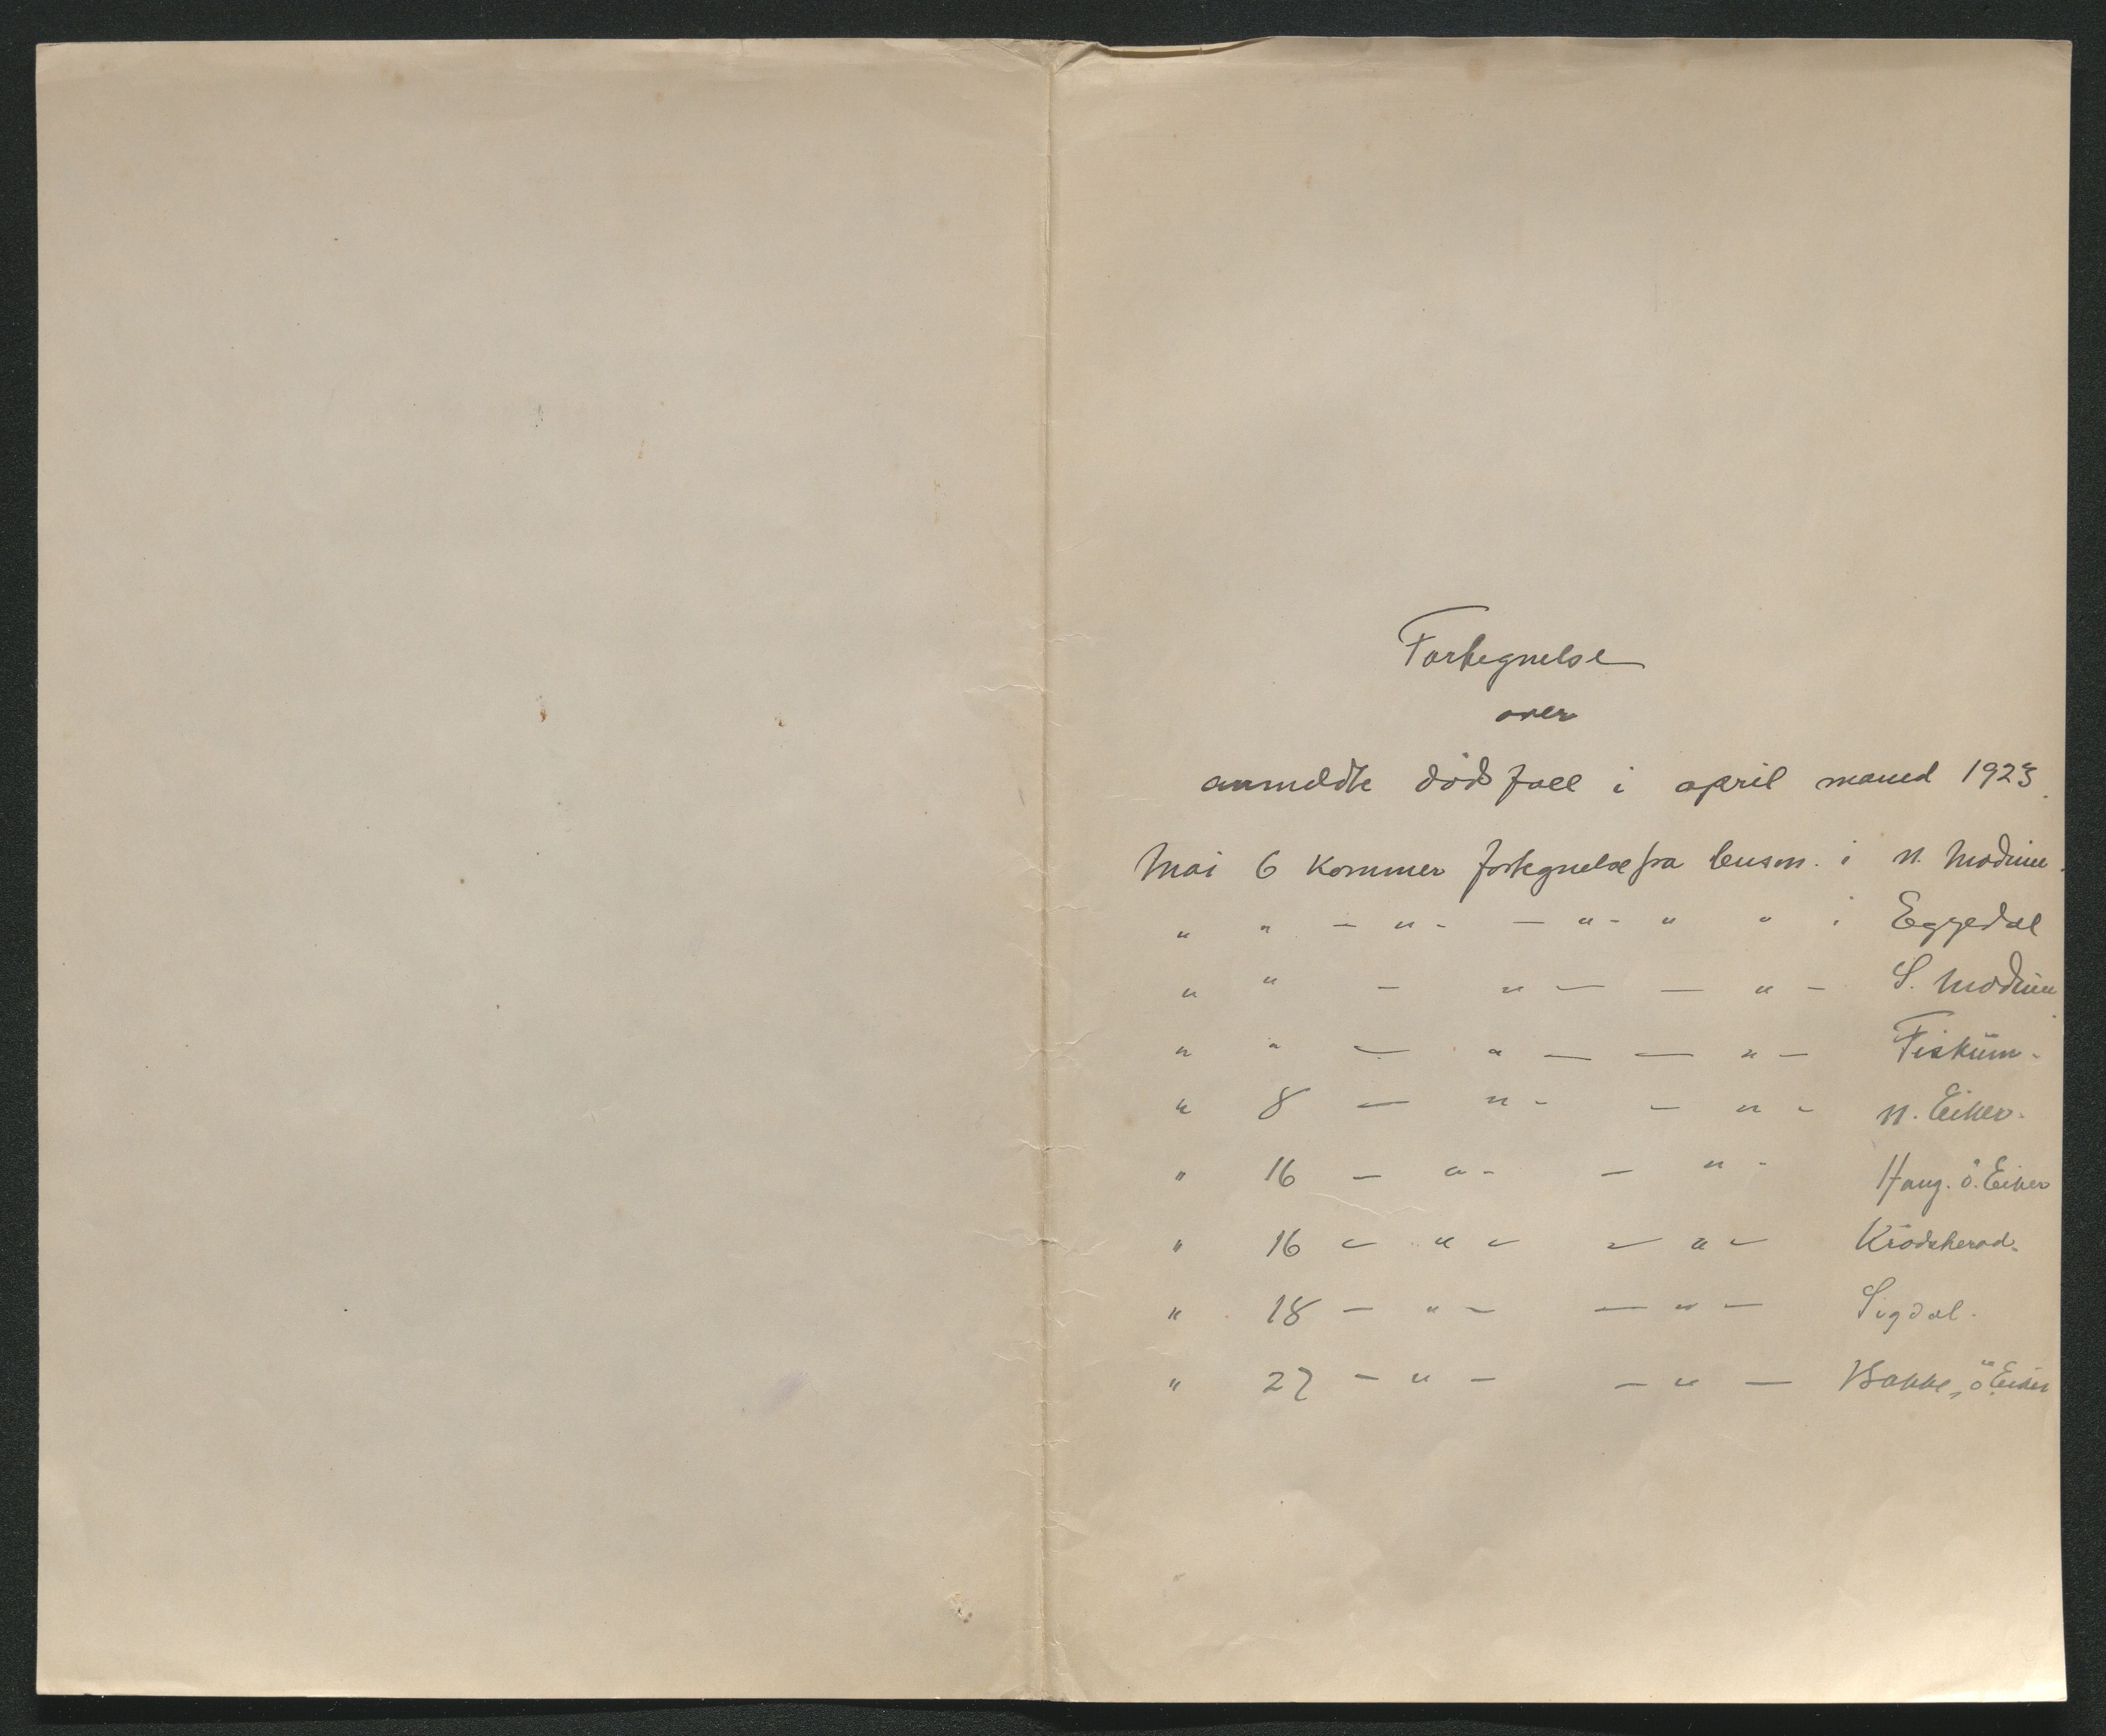 Fortegnelse
over
anmeldte dödsfall i april maned 1923.
Mai 6 kommer fortegnelse fra lensm. i N. Modum.
" " — " - — " - " " i Eggedal
" " — " — — " — S. Modum
" " — " — — " — Fiskum.
" 8 — " - — " - N. Eiker.
" 16 — " - — " - Haug. ö. Eiker
" 16 — " — — " — Krödsherad.
" 18 — " — — " — Sigdal.
" 27 — " — — " — Bakke, ö. Eiker